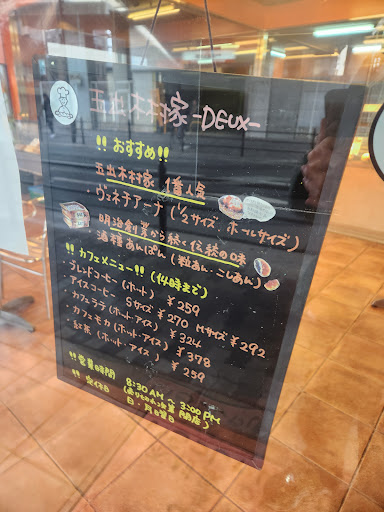 玉出木村家 -DEUX-
!! おすすめ!!
玉出木村家 1番人気
・ヴェネチアーナ (½サイズ、ホールサイズ)
明治創業から続く伝統の味
酒種あんぱん (粒あん・こしあん)
!! カフェメニュー!! (14時まで)
・ブレンドコーヒー (ホット) ¥259
・アイスコーヒー Sサイズ ¥270 Mサイズ ¥292
・カフェラテ (ホット・アイス) ¥324
・カフェモカ (ホット・アイス) ¥378
・紅茶 (ホット・アイス) ¥259
!! 営業時間 8:30AM ~ 3:00PM
(売り切れ次第 閉店)
!! 定休日 日・月曜日